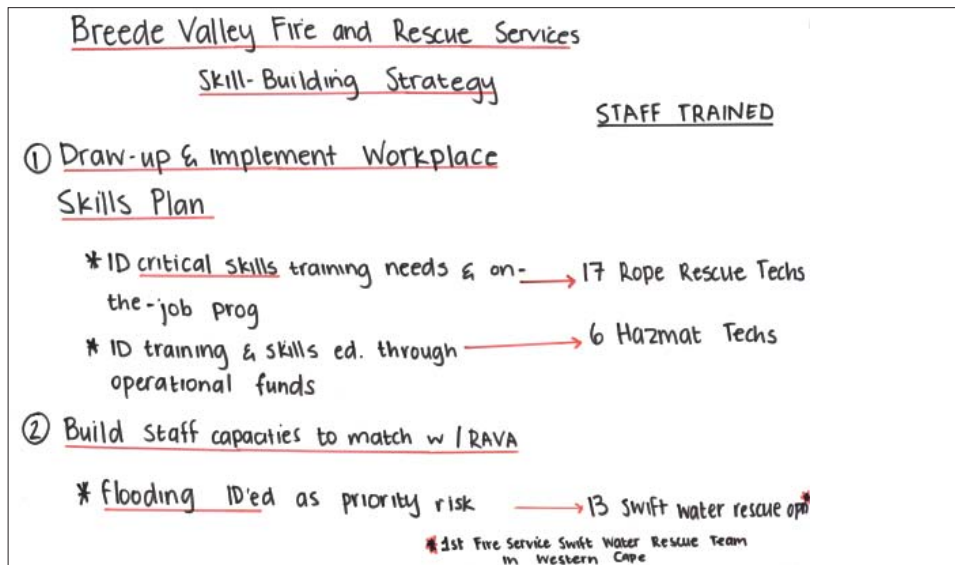 Breede Valley Fire and Rescue Services
Skill-Building Strategy
STAFF TRAINED
① Draw-up & implement Workplace
Skills Plan
* ID critical skills training needs & on- → 17 Rope Rescue Techs
the-job prog
* ID training & skills ed. through → 6 Hazmat Techs
operational funds
② Build staff capacities to match w/RAVA
* flooding ID'ed as priority risk → 13 swift water rescue
* 1st Fire Service Swift Water Rescue Team
in Western Cape